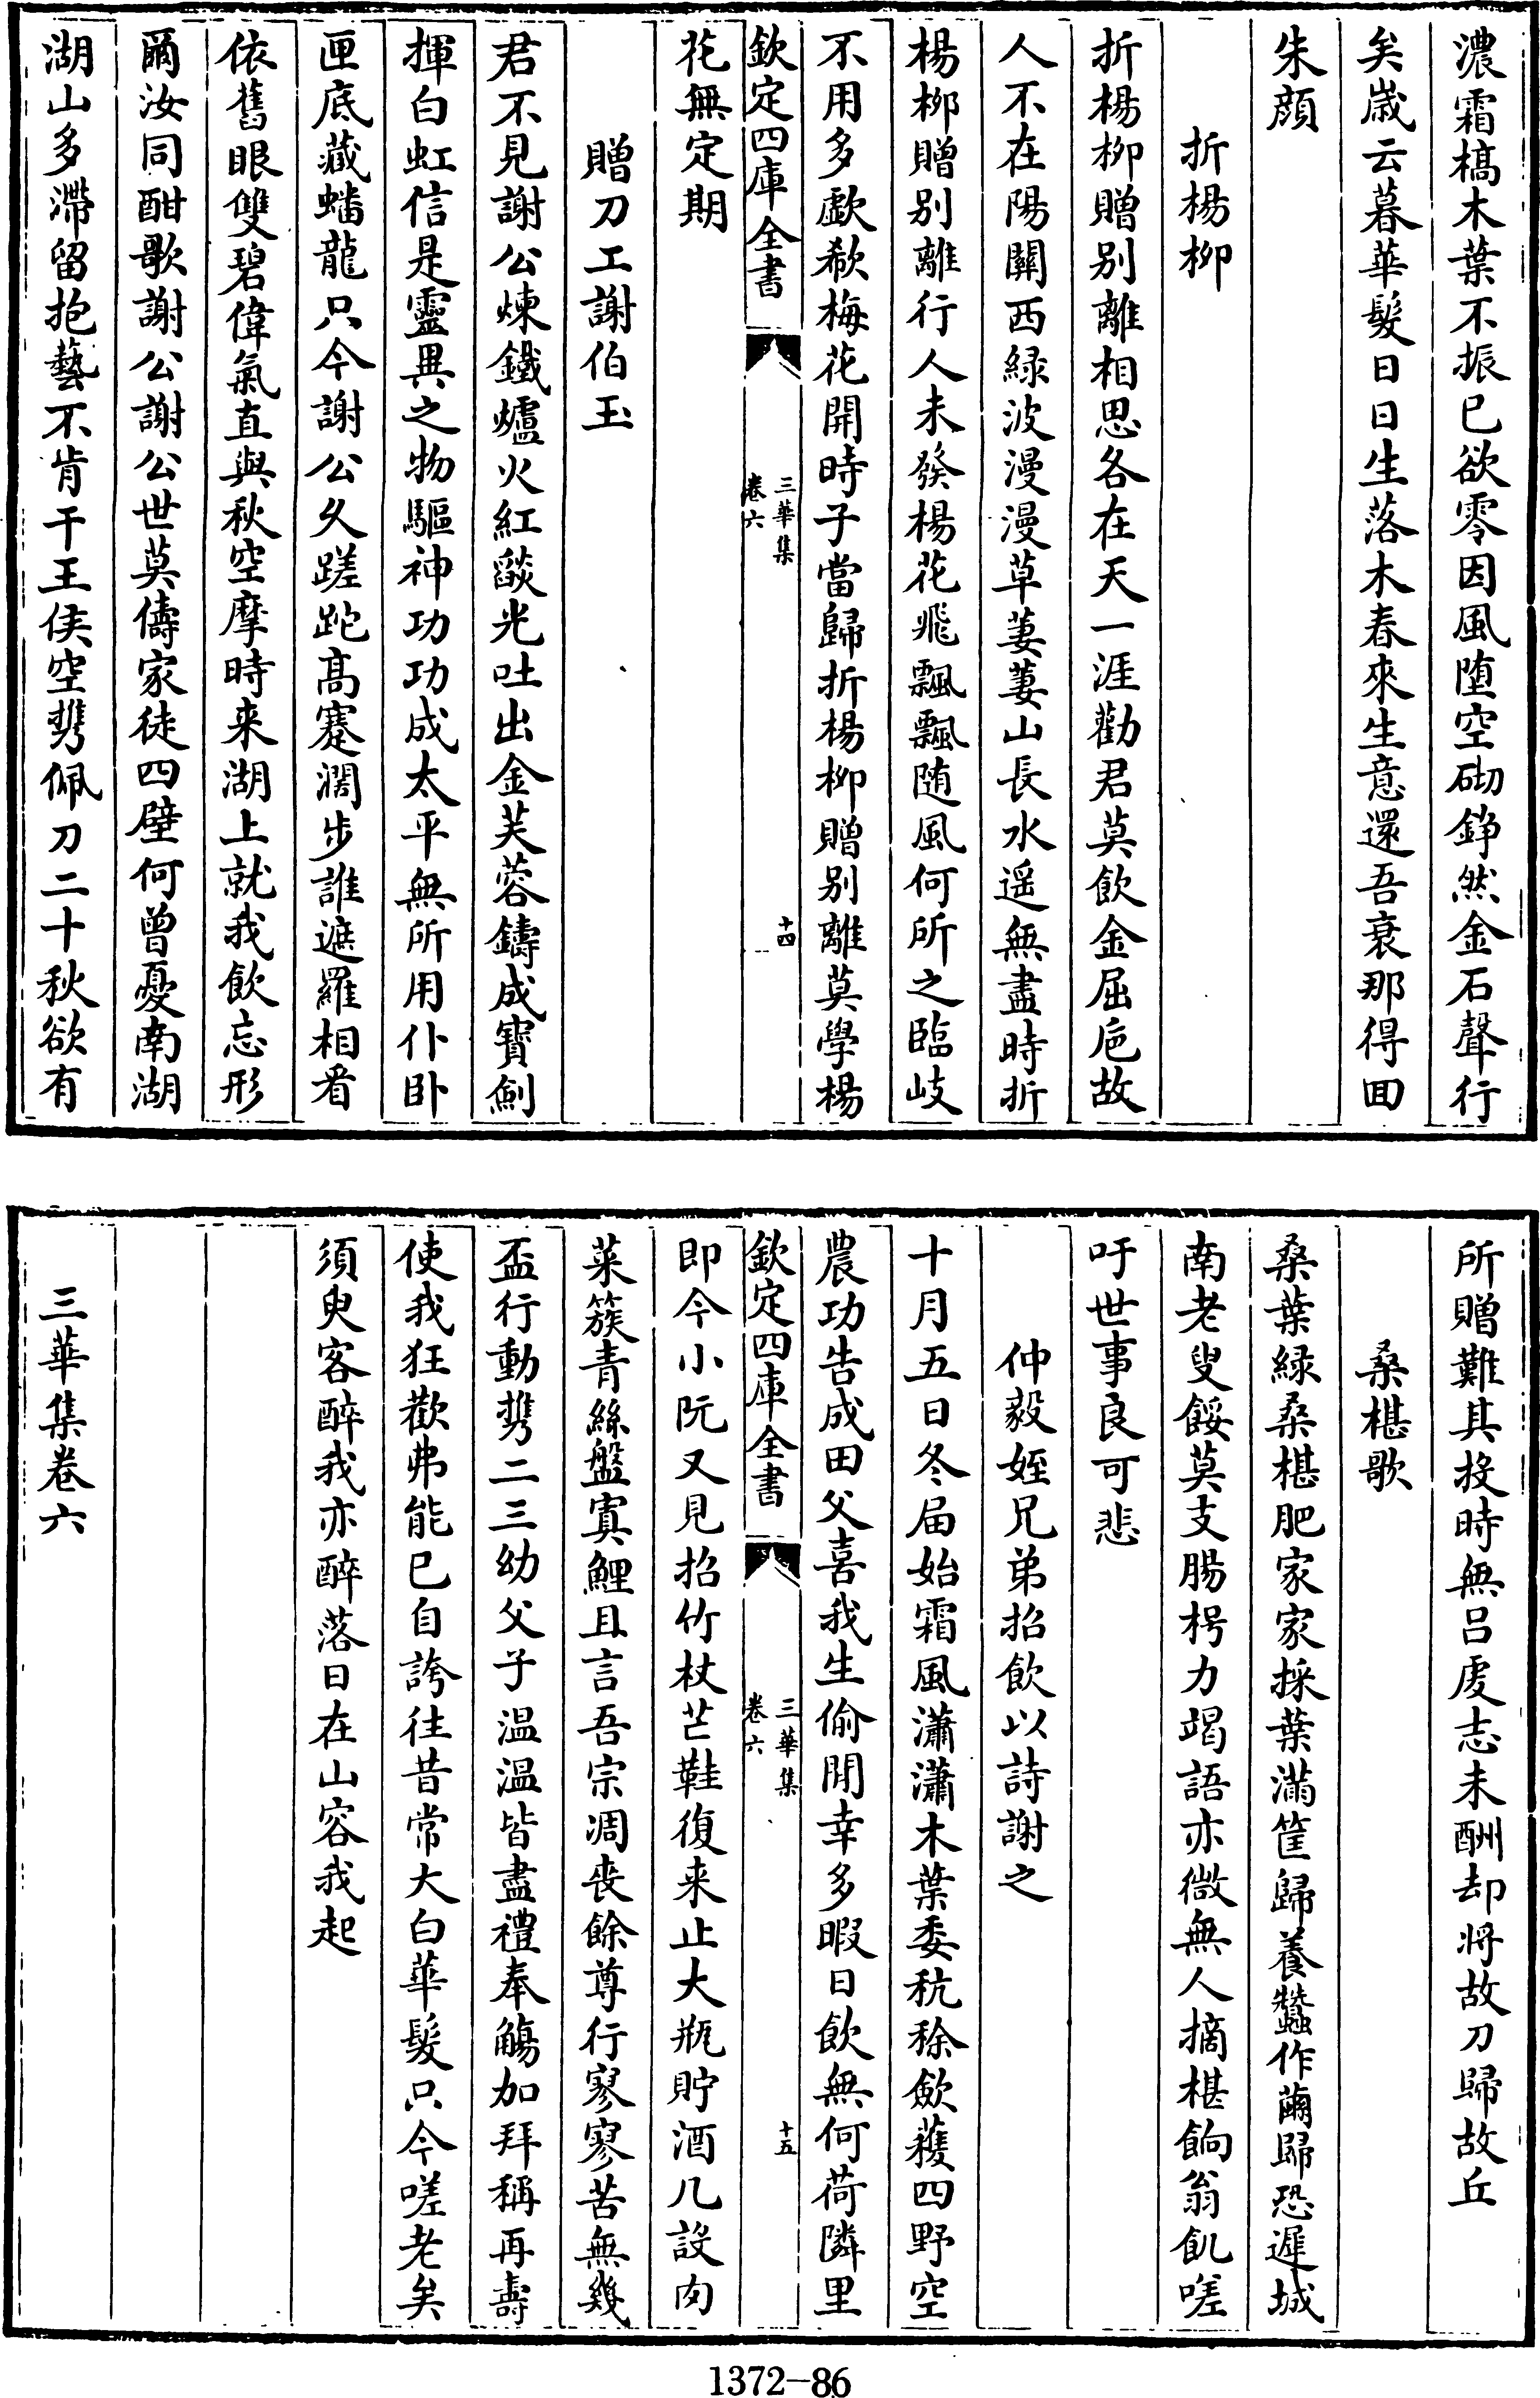 濃霜槁木葉不振已欲零因風墮空砌錚然金石聲行
矣歲云暮華髮日日生落木春來生意還吾衰那得囬
朱顔
折楊栁
折楊栁贈别離相思各在天一涯勸君莫飲金屈巵故
人不在陽關西緑波漫漫草萋萋山長水遥無盡時折
楊栁贈别離行人未發楊花飛飄飄随風何所之臨岐
不用多歔欷梅花開時子當歸折楊栁贈别離莫學楊
欽定四庫全書
三華集
卷六
十四
花無定期
贈刀工謝伯玉
君不見謝公煉鐵爐火紅燄光吐出金芙蓉鑄成寶劍
揮白虹信是靈異之物驅神功功成太平無所用仆卧
匣底藏蟠龍只今謝公久蹉跎髙蹇濶步誰遮羅相看
依舊眼雙碧偉氣直與秋空摩時来湖上就我飲忘形
爾汝同酣歌謝公謝公世莫儔家徒四壁何曾憂南湖
湖山多滯留抱藝不肯干王侯空携佩刀二十秋欲有
所贈難其投時無吕䖍志未酬却将故刀歸故丘
桑椹歌
桑葉緑桑椹肥家家採葉滿筐歸養蠶作繭歸恐遲城
南老叟餒莫支腸枵力竭語亦微無人摘椹餉翁飢嗟
吁世事良可悲
仲毅姪兄弟招飲以詩謝之
十月五日冬届始霜風瀟瀟木葉委秔稌歛穫四野空
農功告成田父喜我生偷閒幸多暇日飲無何荷隣里
欽定四庫全書
三華集
卷六
十五
即今小阮又見招竹杖芒鞋復来止大瓶貯酒几設肉
菜簇青絲盤寘鯉且言吾宗凋喪餘尊行寥寥苦無幾
盃行動携二三幼父子温温皆盡禮奉觴加拜稱再壽
使我狂歡弗能已自誇往昔常大白華髮只今嗟老矣
須臾客醉我亦醉落日在山容我起
三華集卷六
1372—86